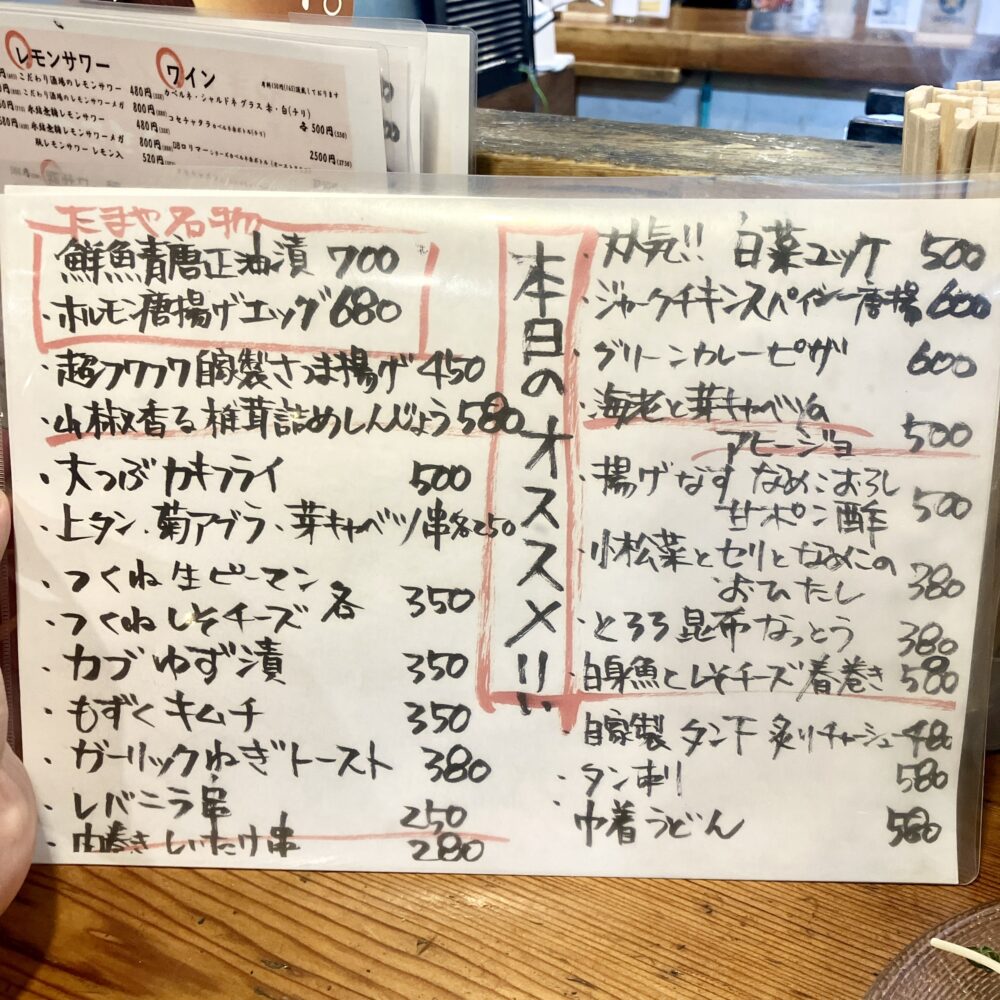 レモンサワー
こだわり酒場のレモンサワー 480円
こだわり酒場のレモンサワーメガ 800円
氷結無糖レモンサワー 480円
氷結無糖レモンサワーメガ 800円
瓶レモンサワー レモン入 520円
ワイン
カベルネ・シャルドネ グラス 赤・白(チリ)
各500円(550)
コセチャタラカベルネ赤ボトル(チリ)
2500円
たまや名物
鮮魚青唐正油漬 700
・ホルモン唐揚げエッグ 680
・超フワフワ自家製さつま揚げ 450
・山椒香る椎茸詰めしんじょう 580
・大つぶカキフライ 500
・上タン、菊アブラ、芽キャベツ串各250
・つくね生ピーマン
・つくねしそチーズ 各 350
・カブゆず漬 350
・もずくキムチ 350
・ガーリックねぎトースト 380
・レバニラ串 250
・肉巻きしいたけ串 280
本日のオススメ!!
・人気!! 白菜ユッケ 500
・ジャークチキンスパイシー唐揚 600
・グリーンカレーピザ 600
・海老と芽キャベツの
アヒージョ 500
・揚げなす なめこおろし
甘ポン酢 500
・小松菜とセリとなめこの
おひたし 380
・とろろ昆布なっとう 380
・白身魚としそチーズ春巻き 580
自家製 タン下 炙りチャーシュー 480
・タン刺し 580
・巾着うどん 580